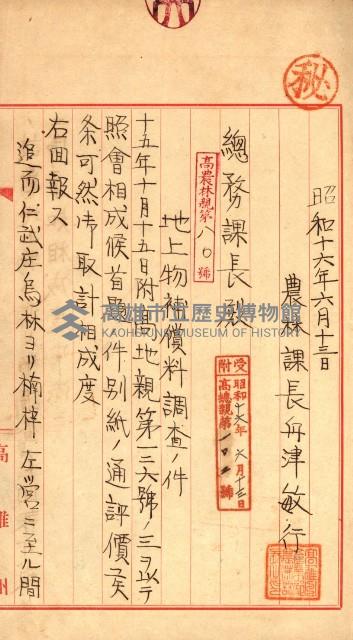 秘
昭和十六年六月十三日
農林課長 舟津敏行
總務課長殿
高農林親第八〇號
受附 昭和十六年 六月十三日
高總親第一〇二號
地上物補償料調査ノ件
十五年十月十五日附高地親第一三六號ノ三ヲ以テ
照會相成候首題ノ件別紙ノ通評價候
条可然御取計相成度
右回報ス
追而仁武庄烏林ヨリ楠梓左営ニ至ル間
高雄州
高雄市立歷史博物館
KAOHSIUNG MUSEUM OF HISTORY